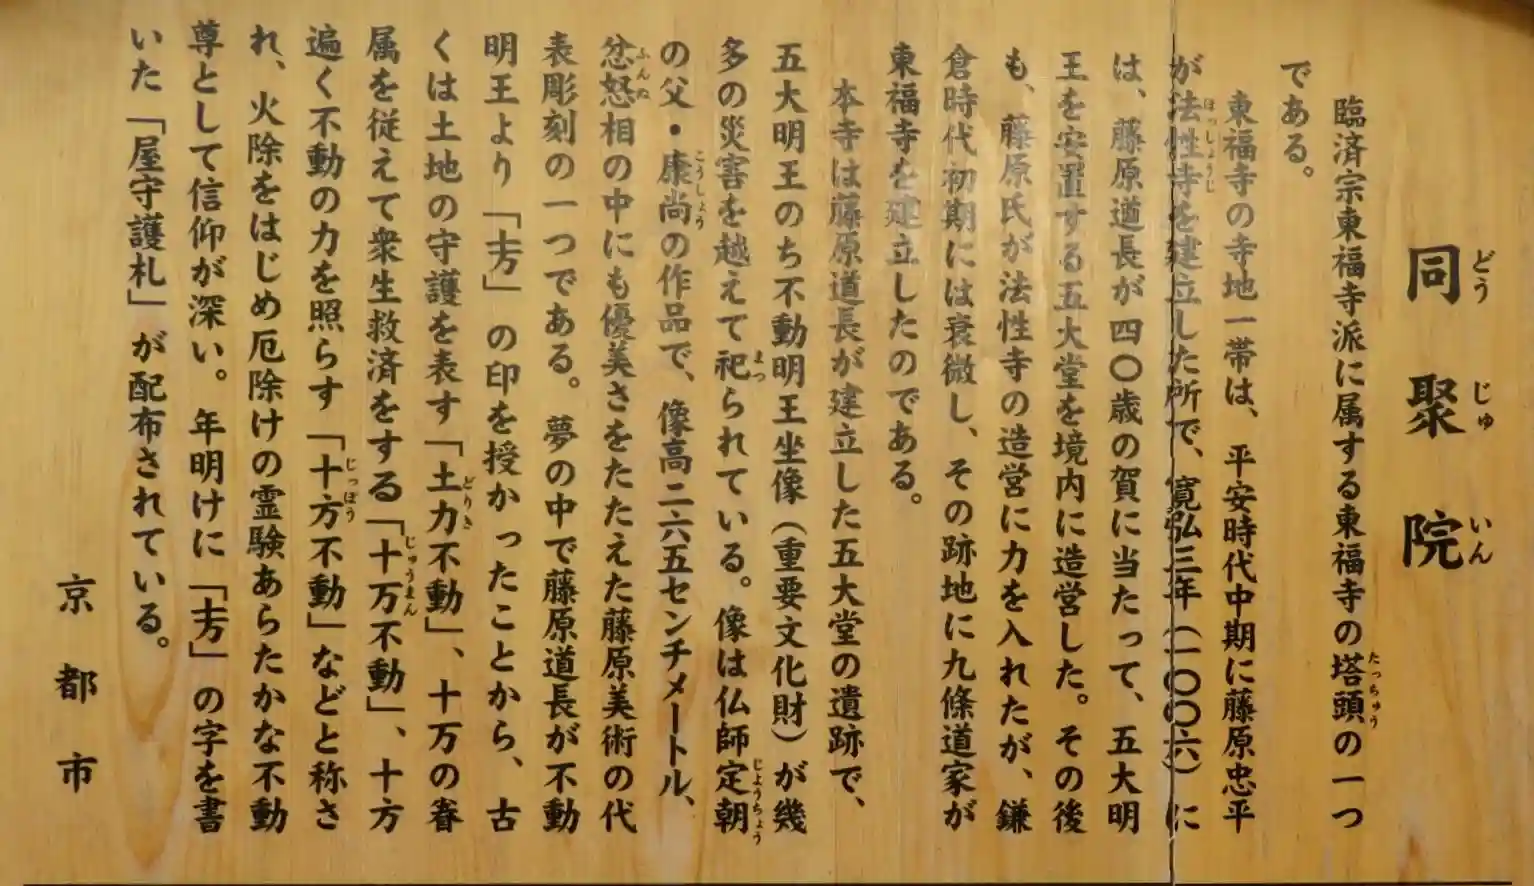 どうじゅいん
同聚院
臨済宗東福寺派に属する東福寺の塔頭の一つ
たっちゅう
である。
東福寺の寺地一帯は、平安時代中期に藤原忠平
が法性寺を建立した所で、寛弘三年（一〇〇六）に
ほっしょうじ
は、藤原道長が四〇歳の賀に当たって、五大明
王を安置する五大堂を境内に造営した。その後
も、藤原氏が法性寺の造営に力を入れたが、鎌
倉時代初期には衰微し、その跡地に九條道家が
東福寺を建立したのである。
本寺は藤原道長が建立した五大堂の遺跡で、
五大明王のち不動明王坐像（重要文化財）が幾
多の災害を越えて祀られている。像は仏師定朝
まつ
じょうちょう
の父・康尚の作品で、像高二六五センチメートル、
こうしょう
忿怒相の中にも優美さをたたえた藤原美術の代
ふんぬ
表彫刻の一つである。夢の中で藤原道長が不動
明王より「」の印を授かったことから、古
くは土地の守護を表す「土力不動」、十万の眷
どりき
属を従えて衆生救済をする「十万不動」、十方
じゅうまん
遍く不動の力を照らす「十方不動」などと称さ
じっぽう
れ、火除をはじめ厄除けの霊験あらたかな不動
尊として信仰が深い。年明けに「」の字を書
いた「屋守護札」が配布されている。
京都市